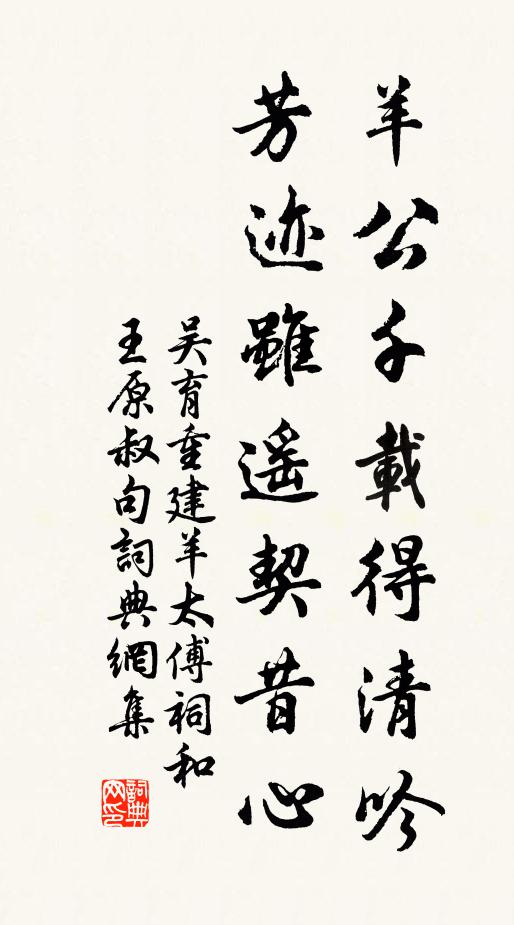 羊公千載得清吟
芳迹雖遥契昔心
吴育重建羊太傅祠和
王原叔句詞典網集
詞典網印